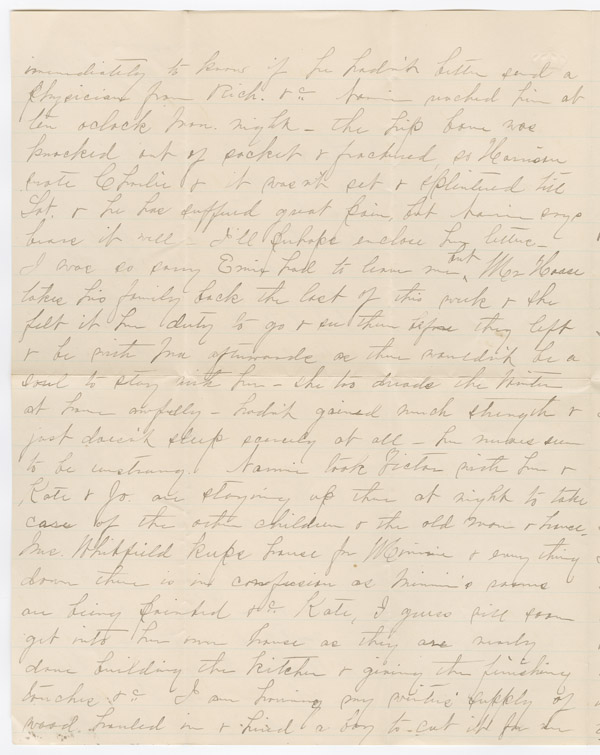 immediately to know if he hadn't better send a
physician from Rich. &c Nannie reached him at
ten oclock Mon. night - the hip bone was
knocked out of socket & fractured, so Harrison
wrote Charlie & it wasn't set & splintered till
Sat. & he has suffered great pain, but Nannie says
bears it well - I'll perhaps enclose her letter -
I was so sorry Ermie had to leave me but Mr Hoase
takes his family back the last of this week & she
felt it her duty to go & see them before they left
& be with Ma afterwards as there wouldn't be a
soul to stay with her - she too dreads the Winter
at home awfully - hadn't gained much strength &
just doesn't sleep scarcely at all - her nerves seem
to be unstrung. Nannie took Victor with her &
Kate & Jo. are staying up there at night to take
care of the other children & the old man & house.
Mrs. Whitfield keeps house for Minnie & everything
down there is in confusion as Minnie's rooms
are being painted &c Kate, I guess will soon
get into her own house as they are nearly
done building the kitchen & giving the finishing
touches &c I am having my winter supply of
wood hauled in & hired a boy to cut it for me